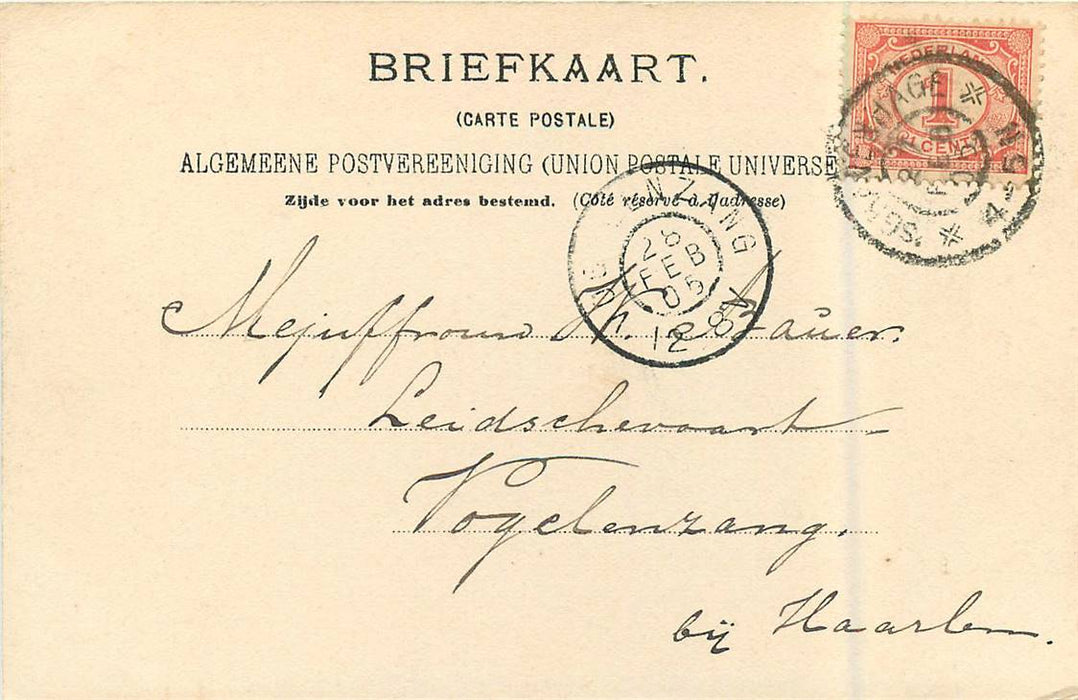 BRIEFKAART.
(CARTE POSTALE)
ALGEMEENE POSTVEREENIGING (UNION POSTALE UNIVERSE
Zijde voor het adres bestemd. (Côté réservé à l'adresse)
NEDERLAND
1
CENT
'SGRAVENHAGE
4-5N
FEB
VOGELENZANG
28
FEB
05
12 8V
Mejuffrouw Bauer.
Leidschevaart
Vogelenzang.
bij Haarlem.